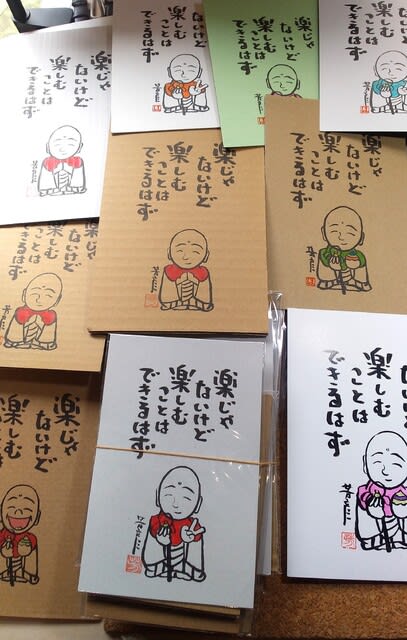 楽じゃ
ないけど
楽しむ
ことは
できるはず
けど
しむ
とは
るはず
楽じゃ
ないけど
楽しむ
ことは
できるはず
けど
しむ
とは
るはず
楽じゃ
ないけど
楽しむ
ことは
できるはず
楽じゃ
ないけど
楽しむ
ことは
できるはず
楽じゃ
ないけど
楽しむ
ことは
できるはず
楽じゃ
ないけど
楽しむ
楽じゃ
ないけど
楽しむ
ことは
できるはず
楽じゃ
ないけど
楽しむ
ことは
できるはず